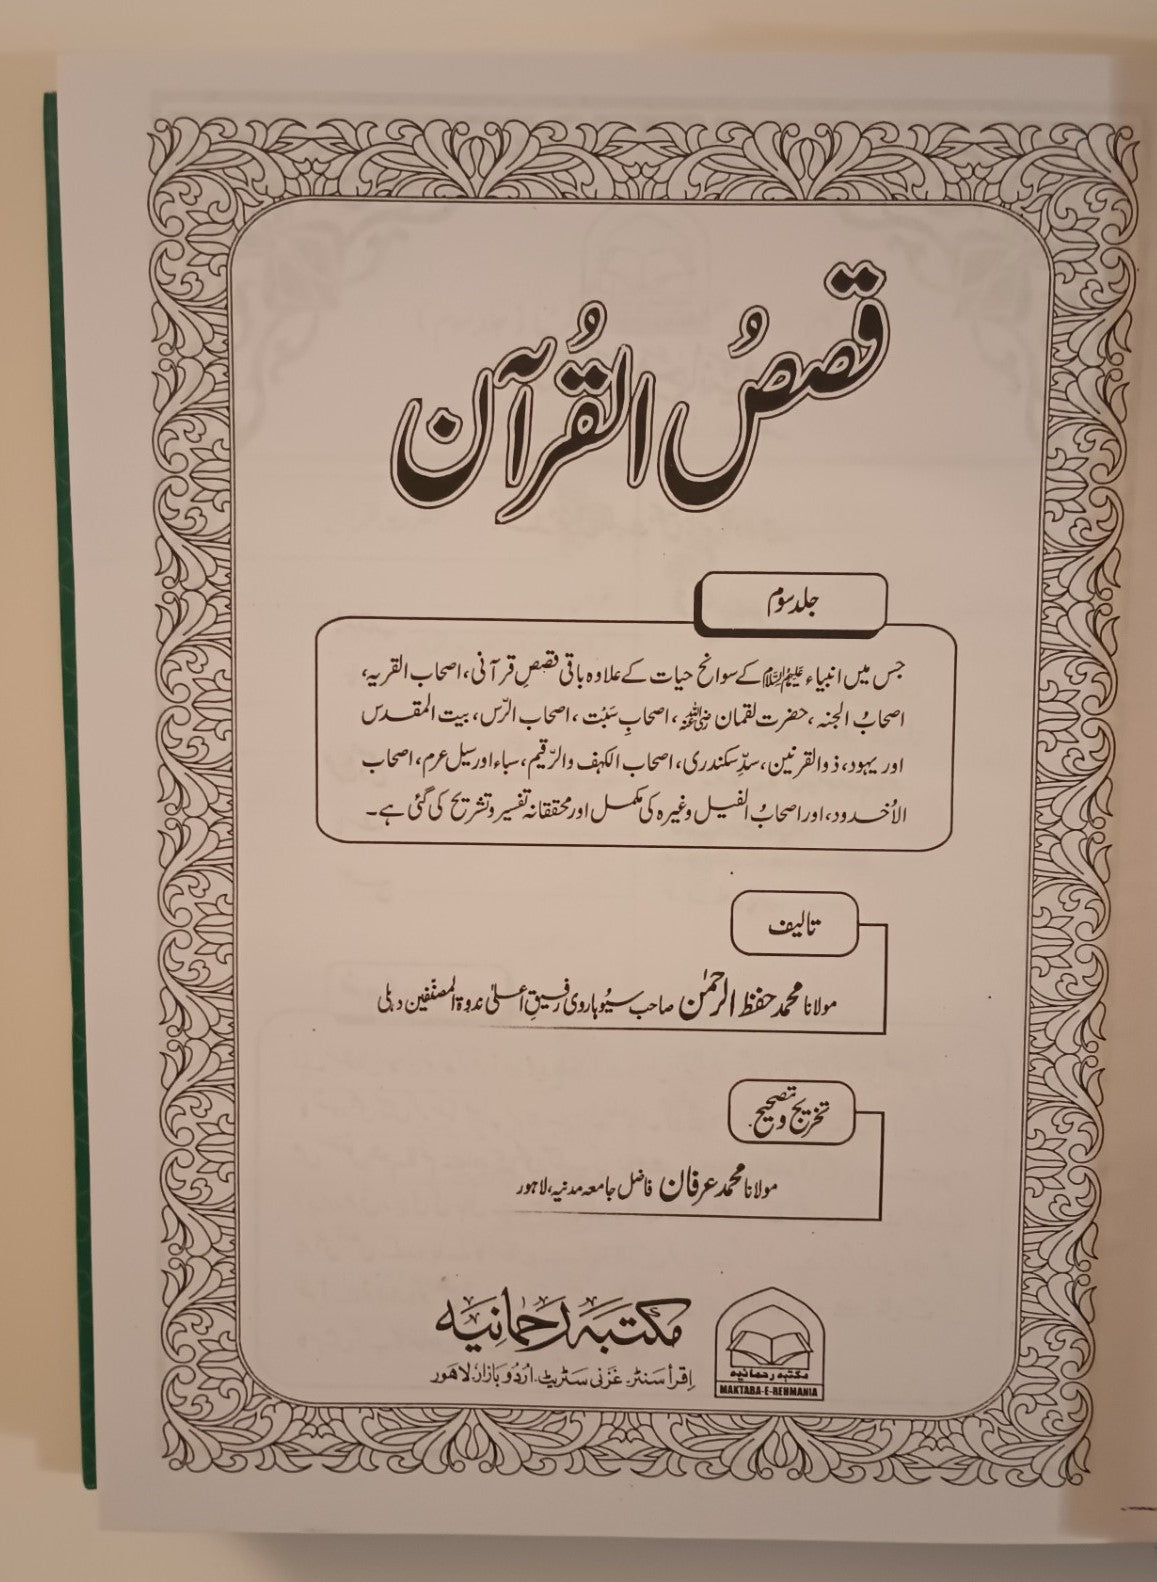 قصصُ القُرآن
جلد سوم
جس میں انبیاء علیہم السلام کے سوانح حیات کے علاوہ باقی قصصِ قرآنی، اصحاب القریہ،
اصحابُ الجنہ، حضرت لقمان رضی اللہ عنہ، اصحابِ سَبْت، اصحاب الرّس، بیت المقدس
اور یہود، ذوالقرنین، سدِّ سکندری، اصحاب الکہف والرّقیم، سباء اور سیل عرم، اصحاب
الأخدود، اور اصحابُ الفیل وغیرہ کی مکمل اور محققانہ تفسیر و تشریح کی گئی ہے۔
تالیف
مولانا محمد حفظ الرحمٰن صاحب سیوہاروی رفیقِ اعلیٰ ندوۃ المصنفین دہلی
تخریج و تصحیح
مولانا محمد عرفان فاضل جامعہ مدنیہ، لاہور
مکتبہ رحمانیہ
اقرأ سنٹر۔ غزنی سٹریٹ۔ اُردُو بازار، لاہور
مکتبہ رحمانیہ
MAKTABA-E-REHMANIA